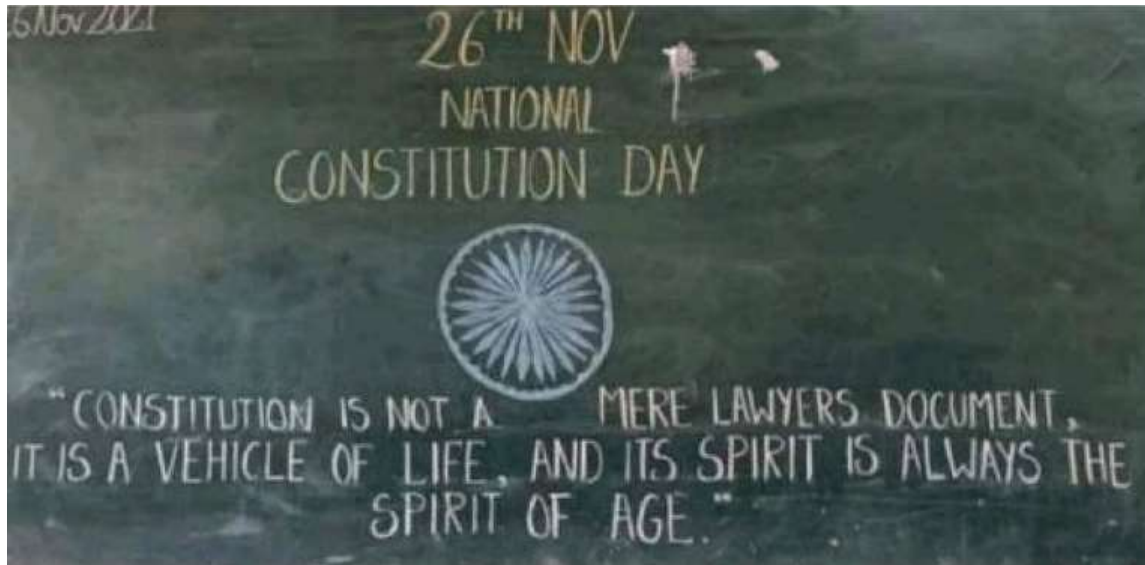 6 Nov 2021
26TH NOV
NATIONAL
CONSTITUTION DAY
"CONSTITUTION IS NOT A MERE LAWYERS DOCUMENT,
IT IS A VEHICLE OF LIFE, AND ITS SPIRIT IS ALWAYS THE
SPIRIT OF AGE."